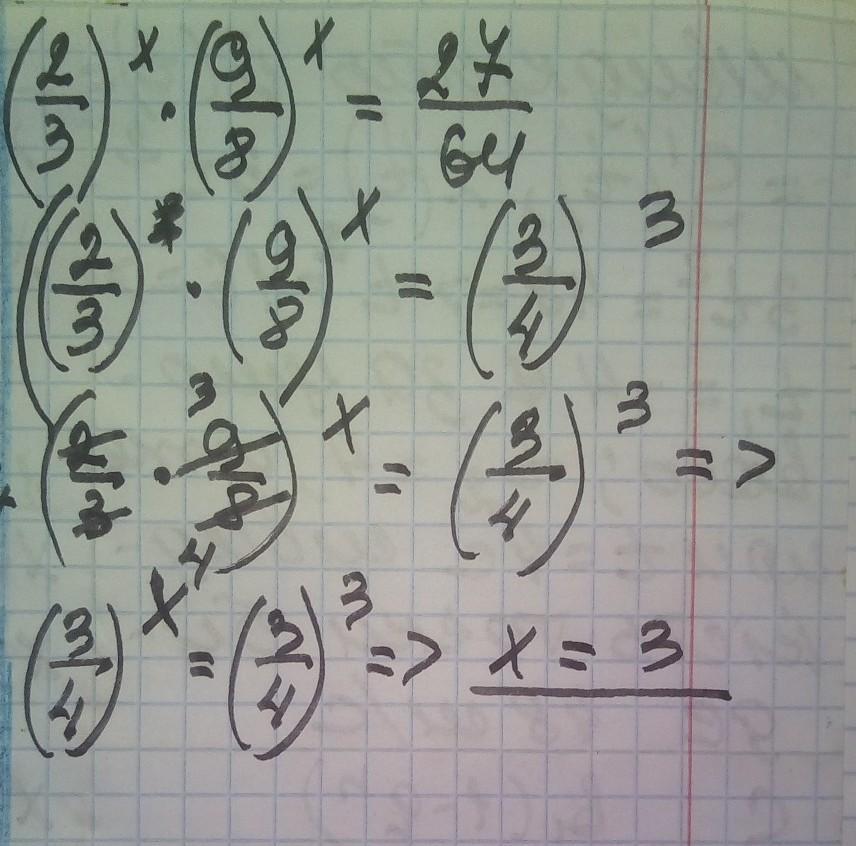 (2/3)^x · (9/8)^x = 27/64
((2/3) · (9/8))^x = (3/4)^3
(2/3 · 9/8)^x = (3/4)^3 =>
(3/4)^x = (3/4)^3 => x = 3